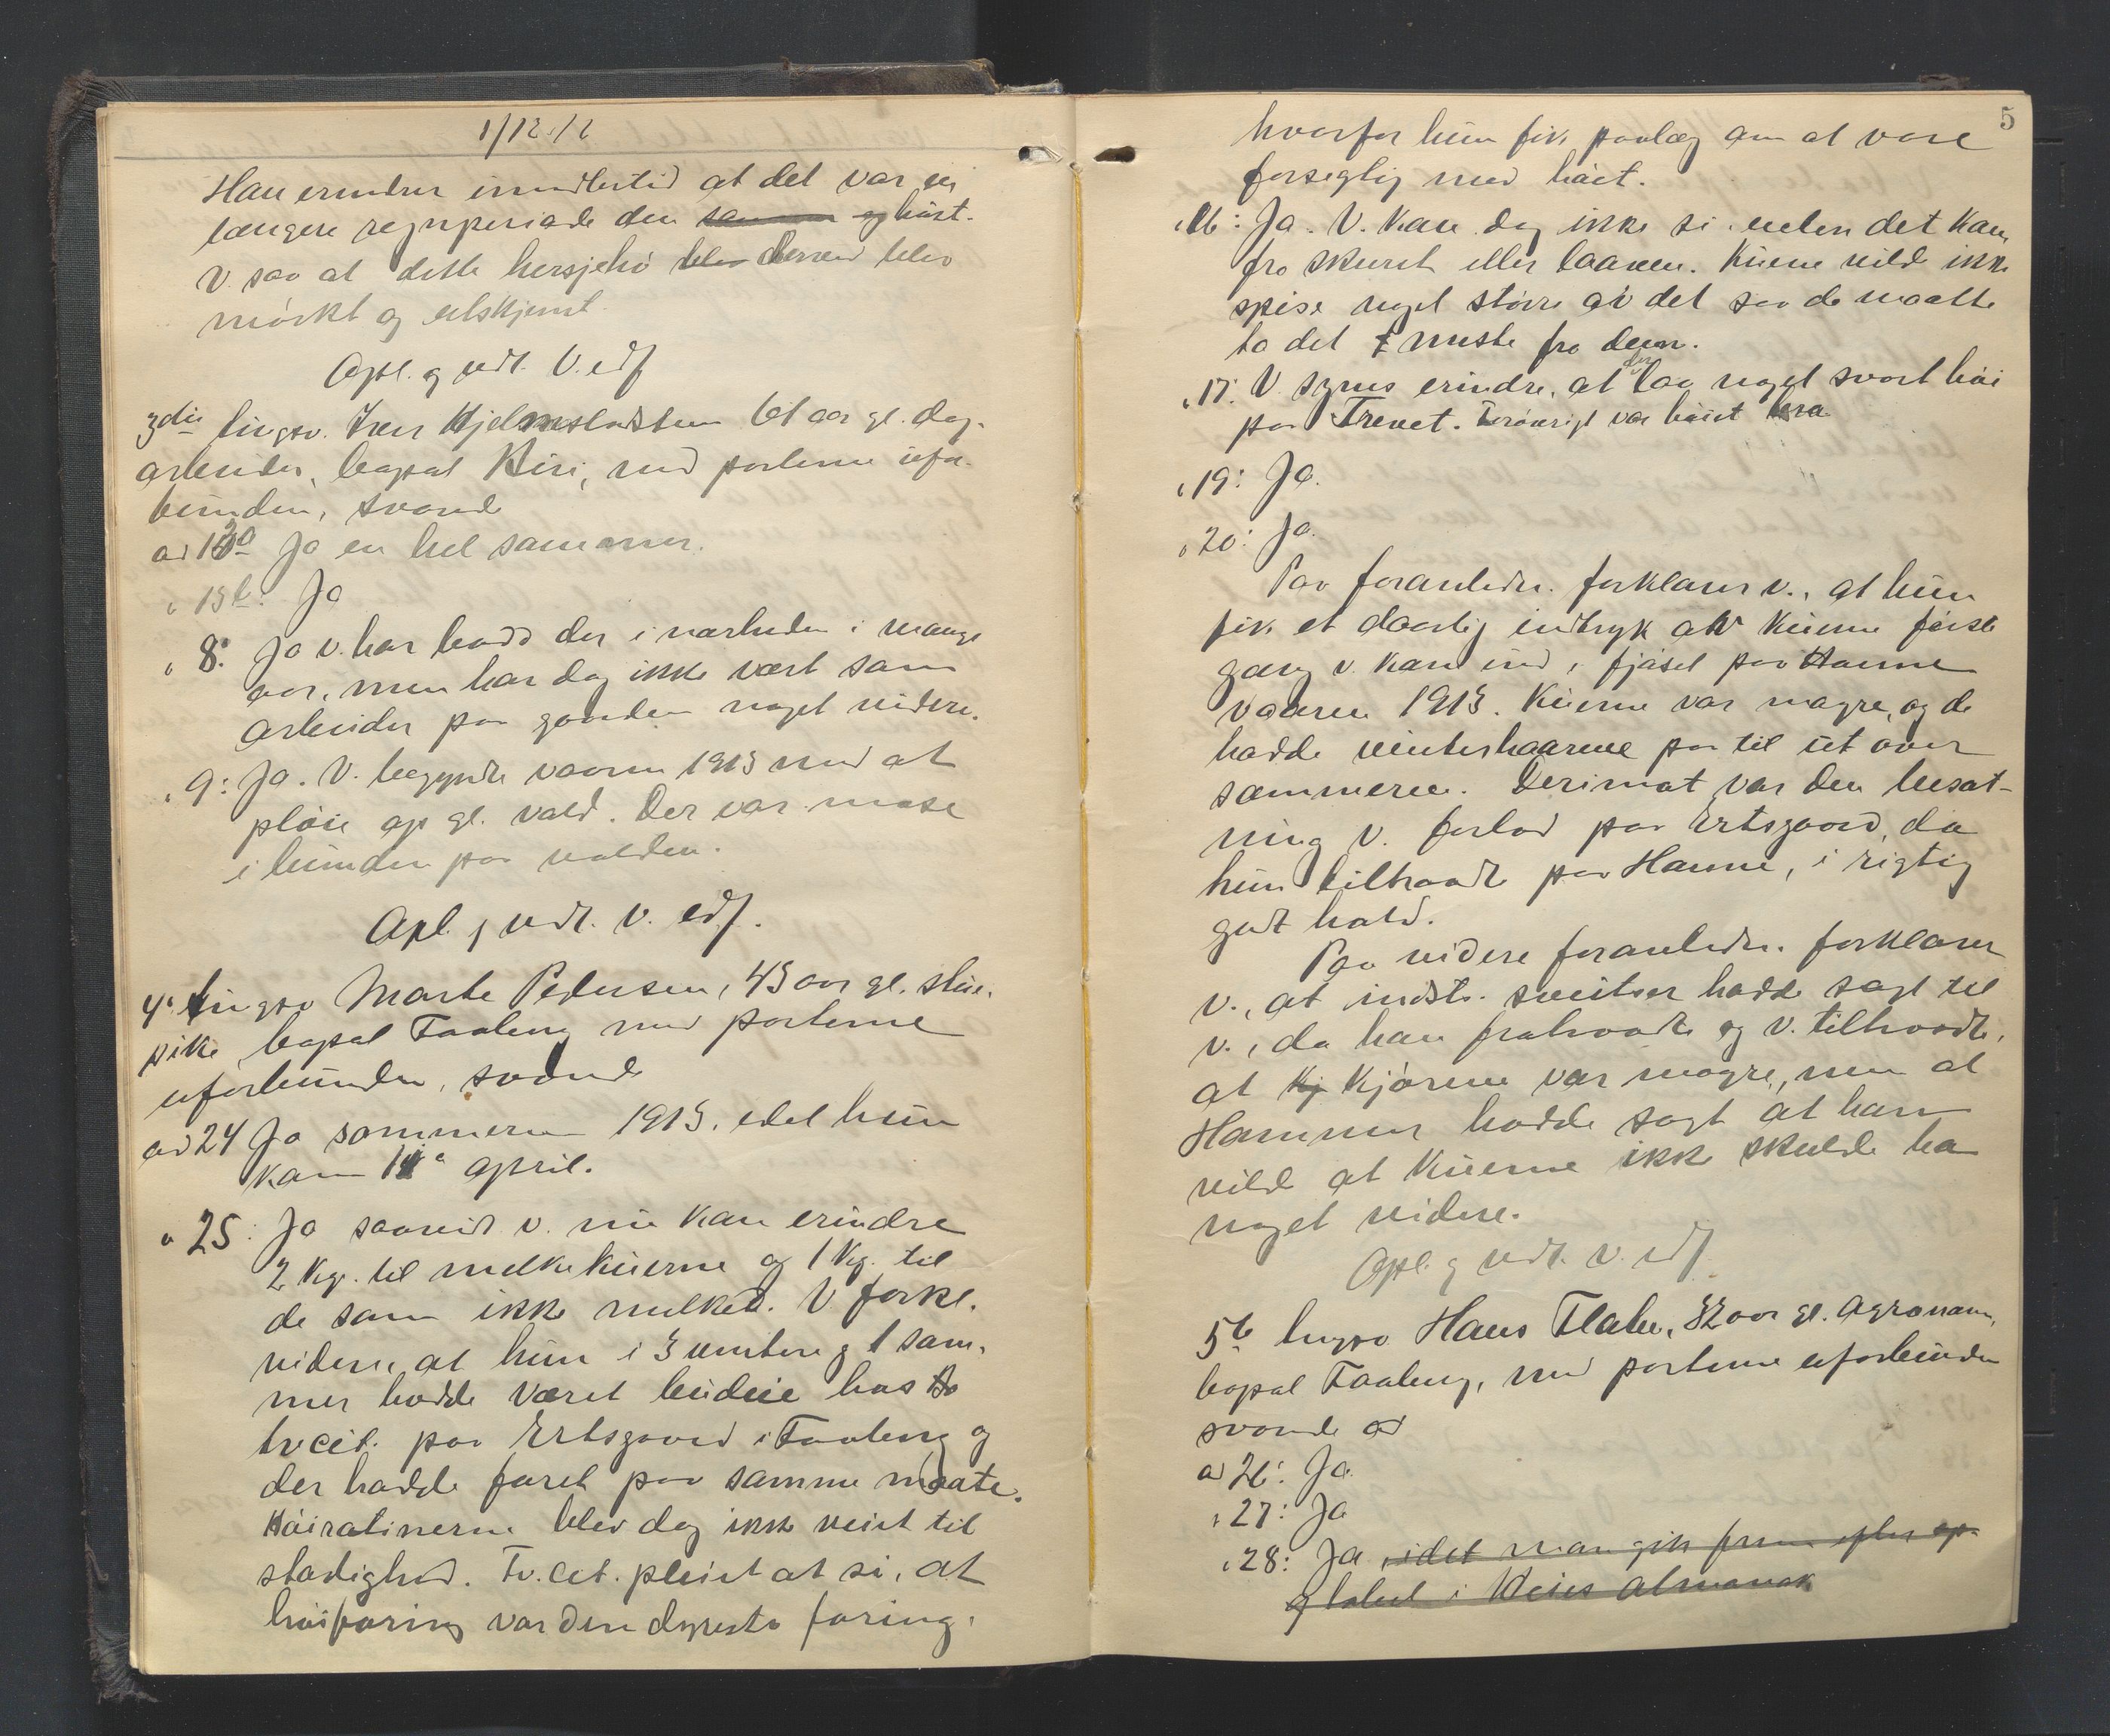 1/12/1
Han erindrer imidlertid at det var en
længere regnperiode den og høst.
V. saa at dette hersjehø blev derved blev
mørkt og utskjemt.
Opl. og vedt. V. edf
3die tingsv. Iver Hjelmstadsteen 61 aar gl. dag-
arbeider, bopæl Biri, med parterne ufor-
bunden, svored
ad 13a Ja en hel sammer.
" 13b: Ja
" 8: Ja v. har bodd der i nærheden i mange
aar, men har dog ikke vært som
arbeider paa gaarden noget videre.
" 9: Ja. V. begyndte vaaren 1913 med at
pløie op gl. vold. Der var mose
i bunden paa volden.
Opl. og vedt. v. edf.
4. tingsv Marte Pedersen, 43 aar gl. stue-
pike bopæl Faaberg med parterne
uforbunden, svored
ad 24 Ja sommeren 1913, idet hun
kom april.
" 25: Ja saavid v. nu kan erindre
2 kg. til melkekuerne og 1 kg. til
de som ikke melket. V. forkl.
videre, at hun i 3 vintere og 1 som-
mer hadde været budeie hos
tv cit. paa Ertsgaard i Faaberg og
der hadde foret paa samme maate.
Høirationerne blev dog ikke veiet til
stadighed. Tv. cit. pleiet at si, at
høiforing var den dyreste foring,
5
hvorfor hun fik paalæg om at være
forsegtig med høiet.
" 16: Ja. V. kan dog ikke si enten det kom
fra skuret eller laaven. Kuerne vilde ikke
spise noget større av det saa de maatte
ta det meste fra dem.
" 17: V. synes erindre, at der laa noget svart høi
paa Trevet. Forøvrigt var høiet bra
" 19: Ja.
" 20: Ja.
Paa foranledn. forklarer v., at hun
fik et daarlig indtryk av kuerne første
gang v. kom ind i fjøset paa Hamne
vaaren 1913. Kuerne var magre, og de
hadde vinterhaarene paa til ut over
sommeren. Derimot var den besæt-
ning v. forlod paa Ertsgaard, da
hun tiltraadte paa Hamne, i rigtig
godt hold.
Paa videre foranledn. forklarer
v., at indst. sveitser hadde sagt til
v., da han fratraadte og v. tiltraadte,
at kj kjørene var magre, men at
Hammer hadde sagt at han
vilde at kuerne ikke skulde ha
noget videre.
Opl. og vedt. v. edf.
5te tingsv Hans Flake, 32 aar gl. agronom,
bopæl Faaberg, med parterne uforbunden
svorede ad
ad 26: Ja
" 27: Ja
" 28: Ja, idet man gik frem efter op-
g tabel i Weies almanak